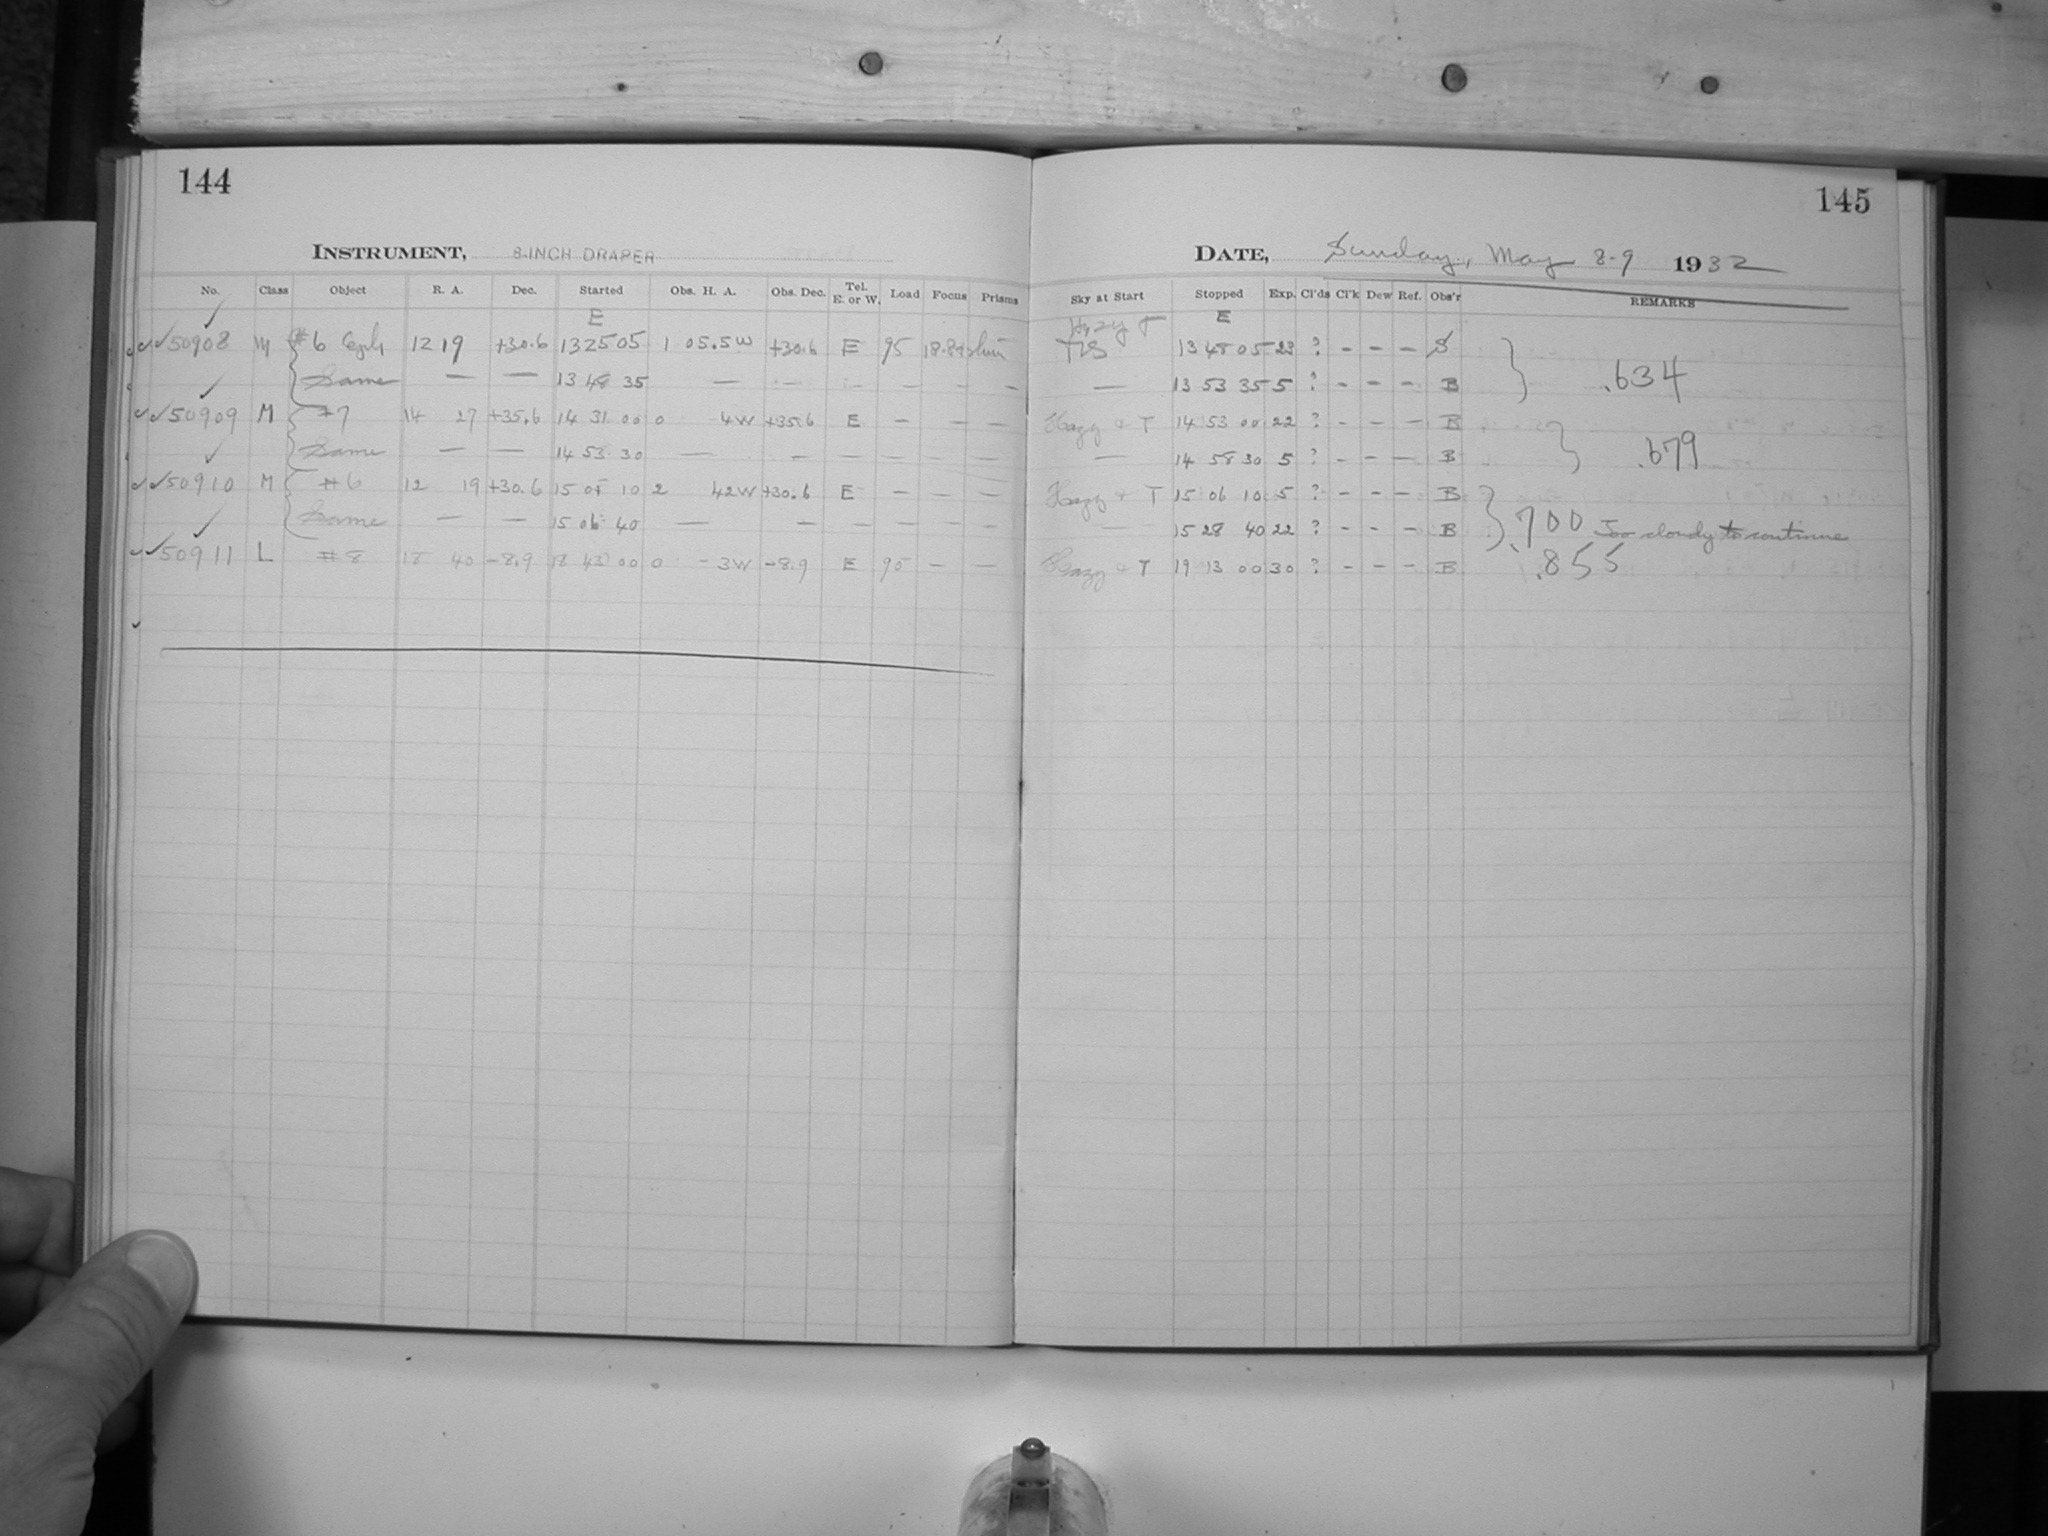 144
INSTRUMENT, 8-INCH DRAPER
No. Class Object R. A. Dec. Started Obs. H. A. Obs. Dec. Tel. E. or W. Load Focus Prisms
E
✓✓50908 M #6 12 19 +30.6 13 25 05 1 05.5W +30.6 E 95
Same — — 13 48 35 — — — — — —
✓✓50909 M #7 14 27 +35.6 14 31 00 0 4W +35.6 E — — —
Same — — 14 53 30 — — — — — —
✓✓50910 M #6 12 19 +30.6 15 01 10 2 42W +30.6 E — — —
Same — — 15 06 40 — — — — — —
✓✓50911 L #8 18 40 -8.9 18 43 00 0 -3W -8.9 E 90 — —
145
DATE, Sunday, May 8-9 1932
Sky at Start Stopped Exp. Cl'ds Cl'k Dew Ref. Obs'r REMARKS
E
Hazy
13 48 05 23 ? - - - S .634
— 13 53 35 5 ? - - - B
Hazy + T 14 53 00 22 ? - - - B .679
— 14 58 30 5 ? - - - B
Hazy + T 15 06 10 5 ? - - - B
— 15 28 40 22 ? - - - B .700 Too cloudy to continue
Hazy + T 19 13 00 30 ? - - - B .855